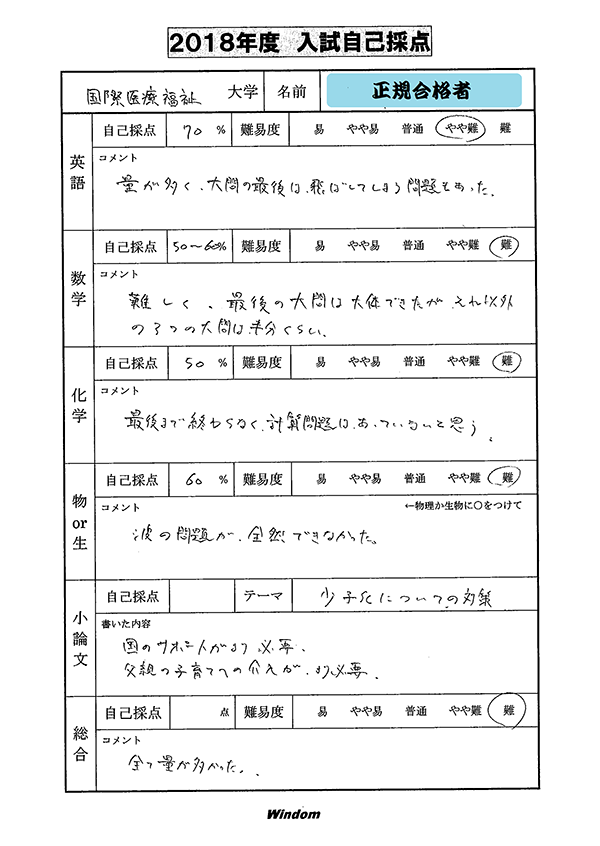 2018年度 入試自己採点
国際医療福祉 大学 名前 正規合格者
英語
自己採点 70 % 難易度 易 やや易 普通 やや難 難
コメント
量が多く、大問の最後は、飛ばしてしまう問題もあった。
数学
自己採点 50～60% 難易度 易 やや易 普通 やや難 難
コメント
難しく、最後の大問は大体できたが、それ以外
の3つの大問は半分くらい。
化学
自己採点 50 % 難易度 易 やや易 普通 やや難 難
コメント
最後まで終わらなく、計算問題は、あっていないと思う。
物or生
自己採点 60 % 難易度 易 やや易 普通 やや難 難
コメント ←物理か生物に○をつけて
波の問題が、全然できなかった。
小論文
自己採点 テーマ 少子化についての対策
書いた内容
国のサポートがより必要、
父親の子育てへの介入が、より必要。
総合
自己採点 点 難易度 易 やや易 普通 やや難 難
コメント
全て量が多かった。
Windom